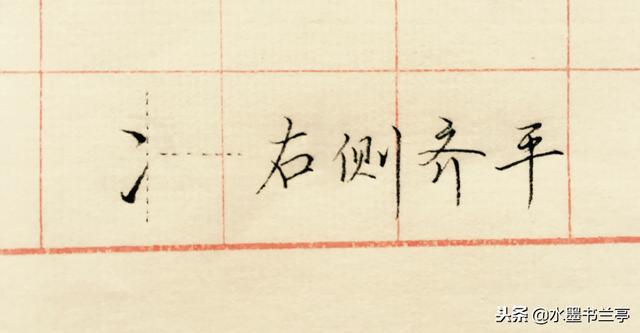 冫右侧齐平
头条 @水墨书兰亭